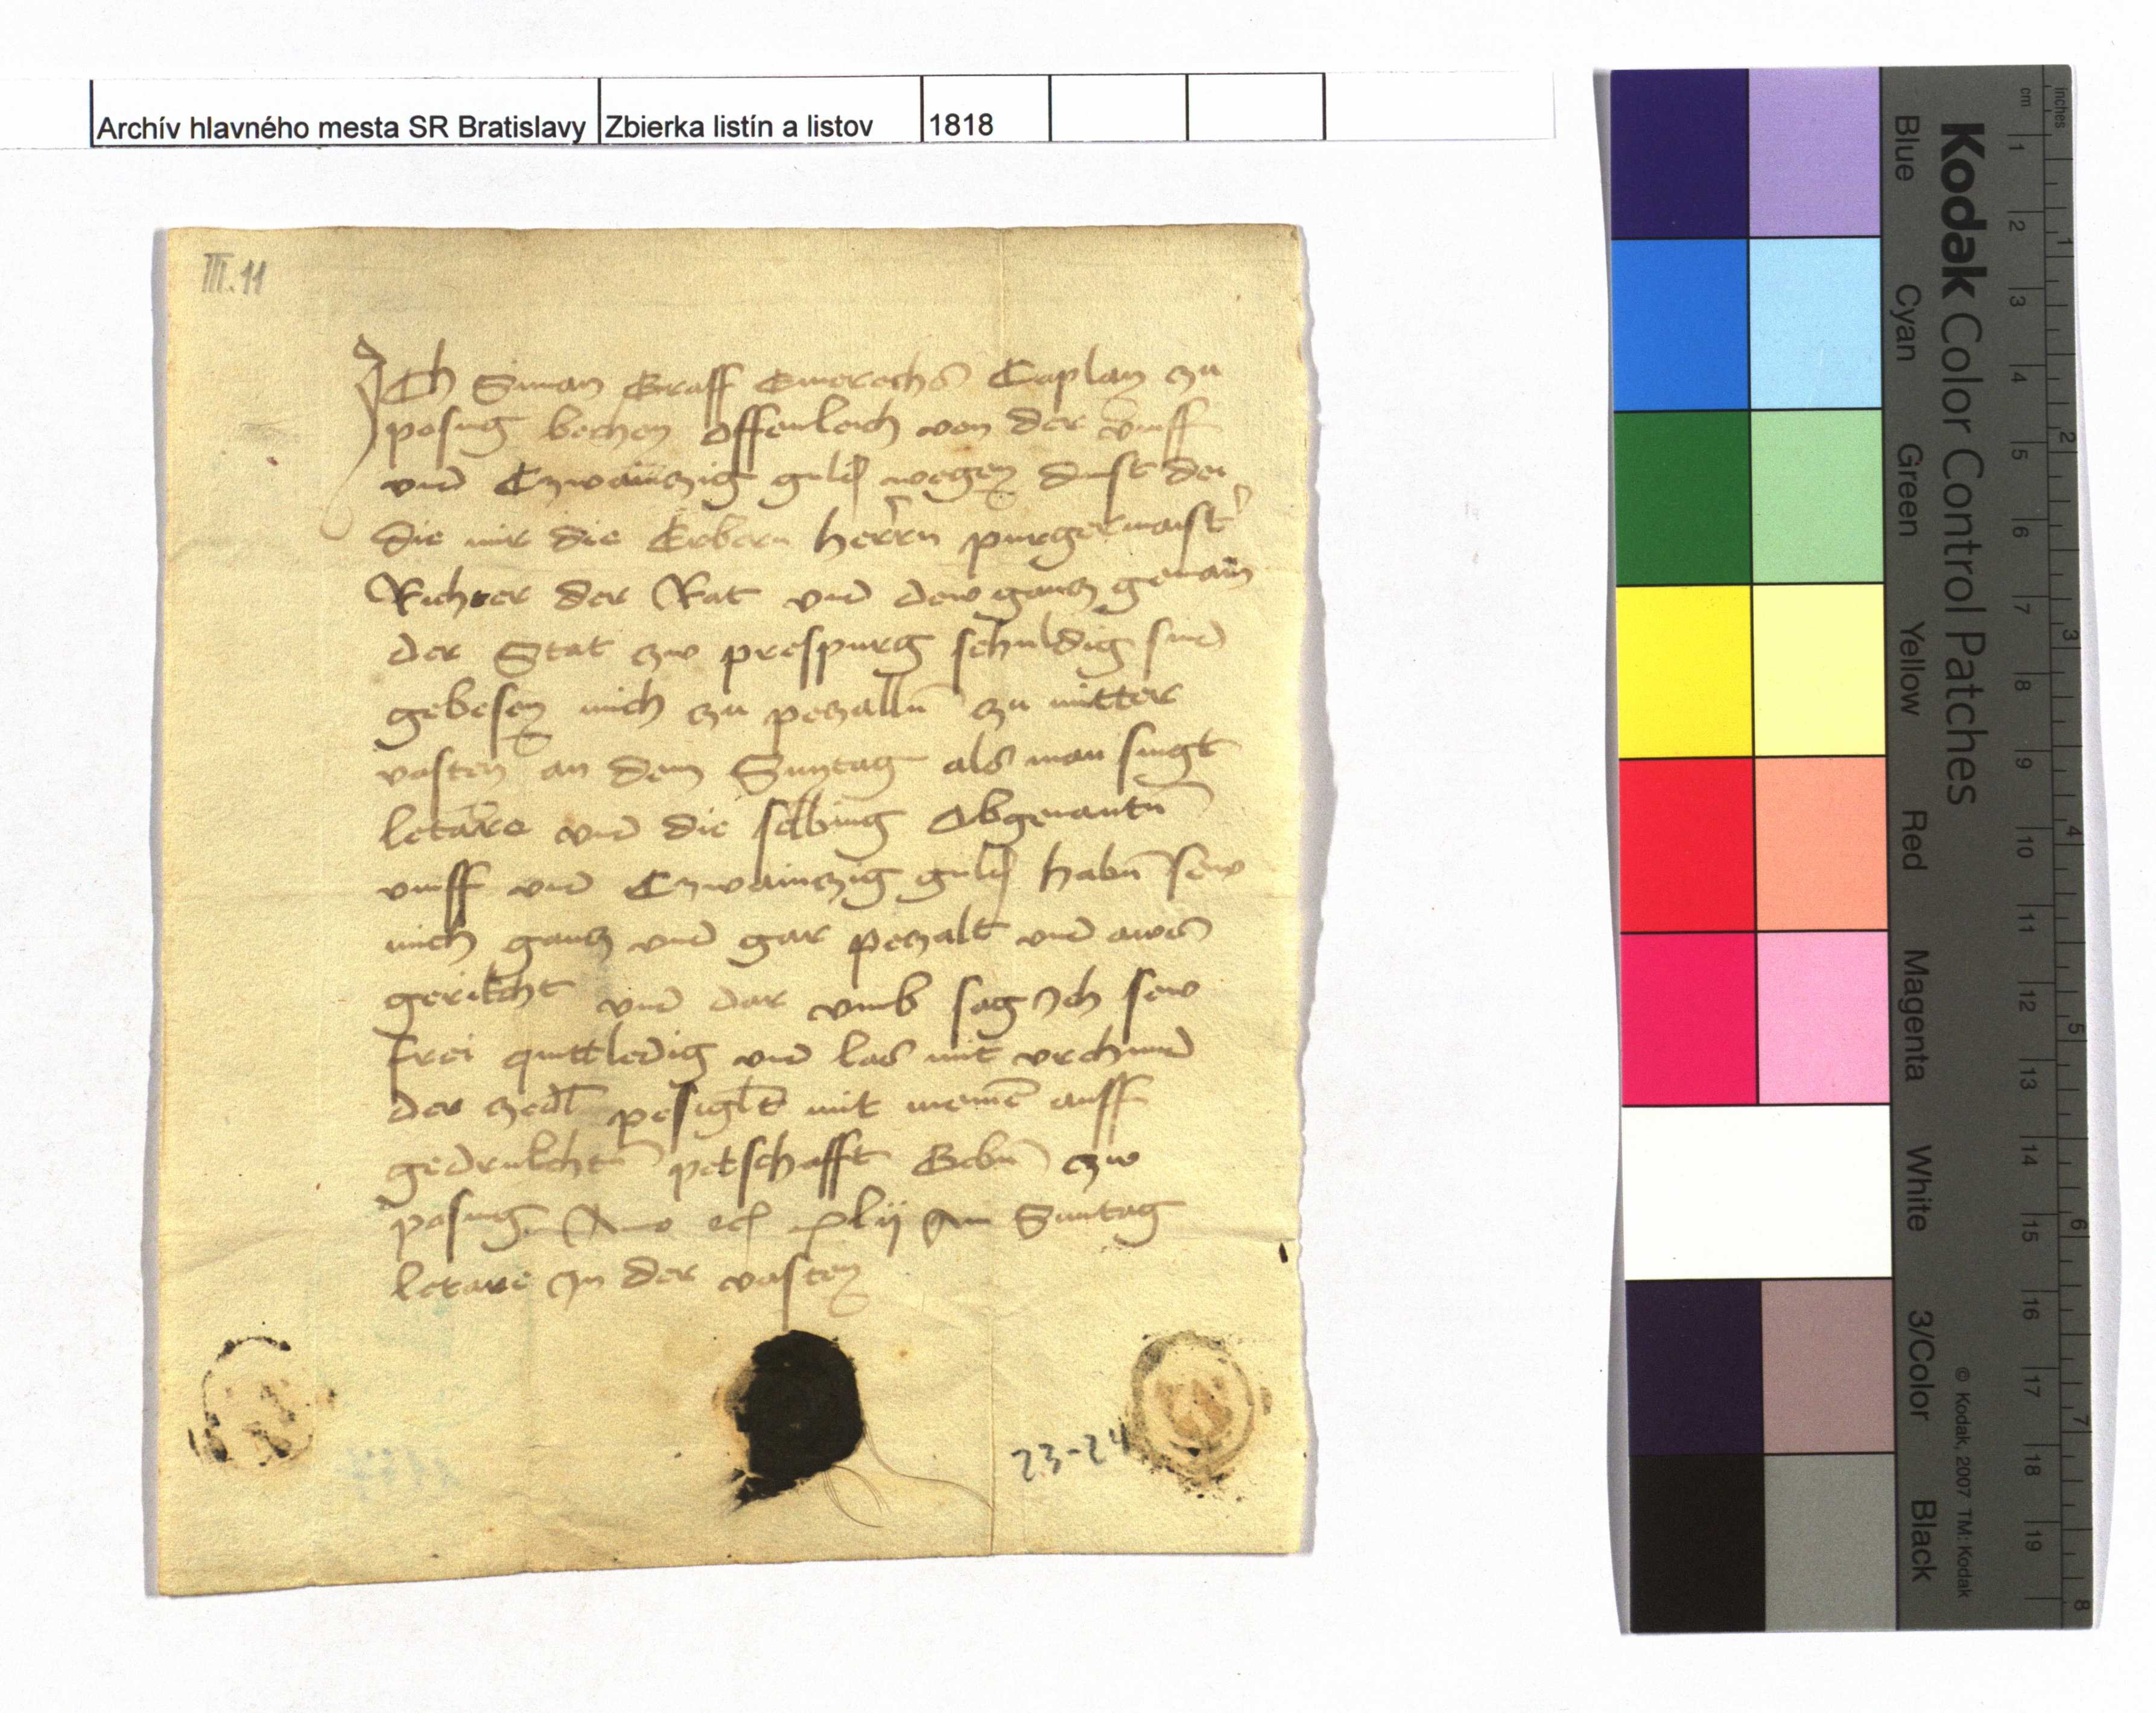 Archív hlavného mesta SR Bratislavy Zbierka listín a listov 1818
III. 11
Ich Siman Graff Emerechs Caplan zu
posing bechen offenleich von der vmff
vnd Czwainzig guld wegen
die mir die Erbern herrn purgermaist
Richter der Rat vnd dew gancz gemain
der Stat zw prespurg schuldig sind
gebesen mich zu peczalln zu mitter
vasten an dem Suntag als man singt
letare vnd die selbing Obgenantn
vmff vnd Czwainzig guld habn sew
mich gancz vnd gar peczalt vnd aws
gerikcht vnd dar vmb sag Ich sew
frei quittledig vnd las mit vrchund
der zedl pesiglt mit meinem auff
gedrukchtn petschafft Gebn zw
posing Anno xlij Am Suntag
letare In der vasten
23-24
Kodak Color Control Patches
Blue Cyan Green Yellow Red Magenta White 3/Color Black
© Kodak, 2007 TM: Kodak
cm 1 2 3 4 5 6 7 8 9 10 11 12 13 14 15 16 17 18 19
inches 1 2 3 4 5 6 7 8